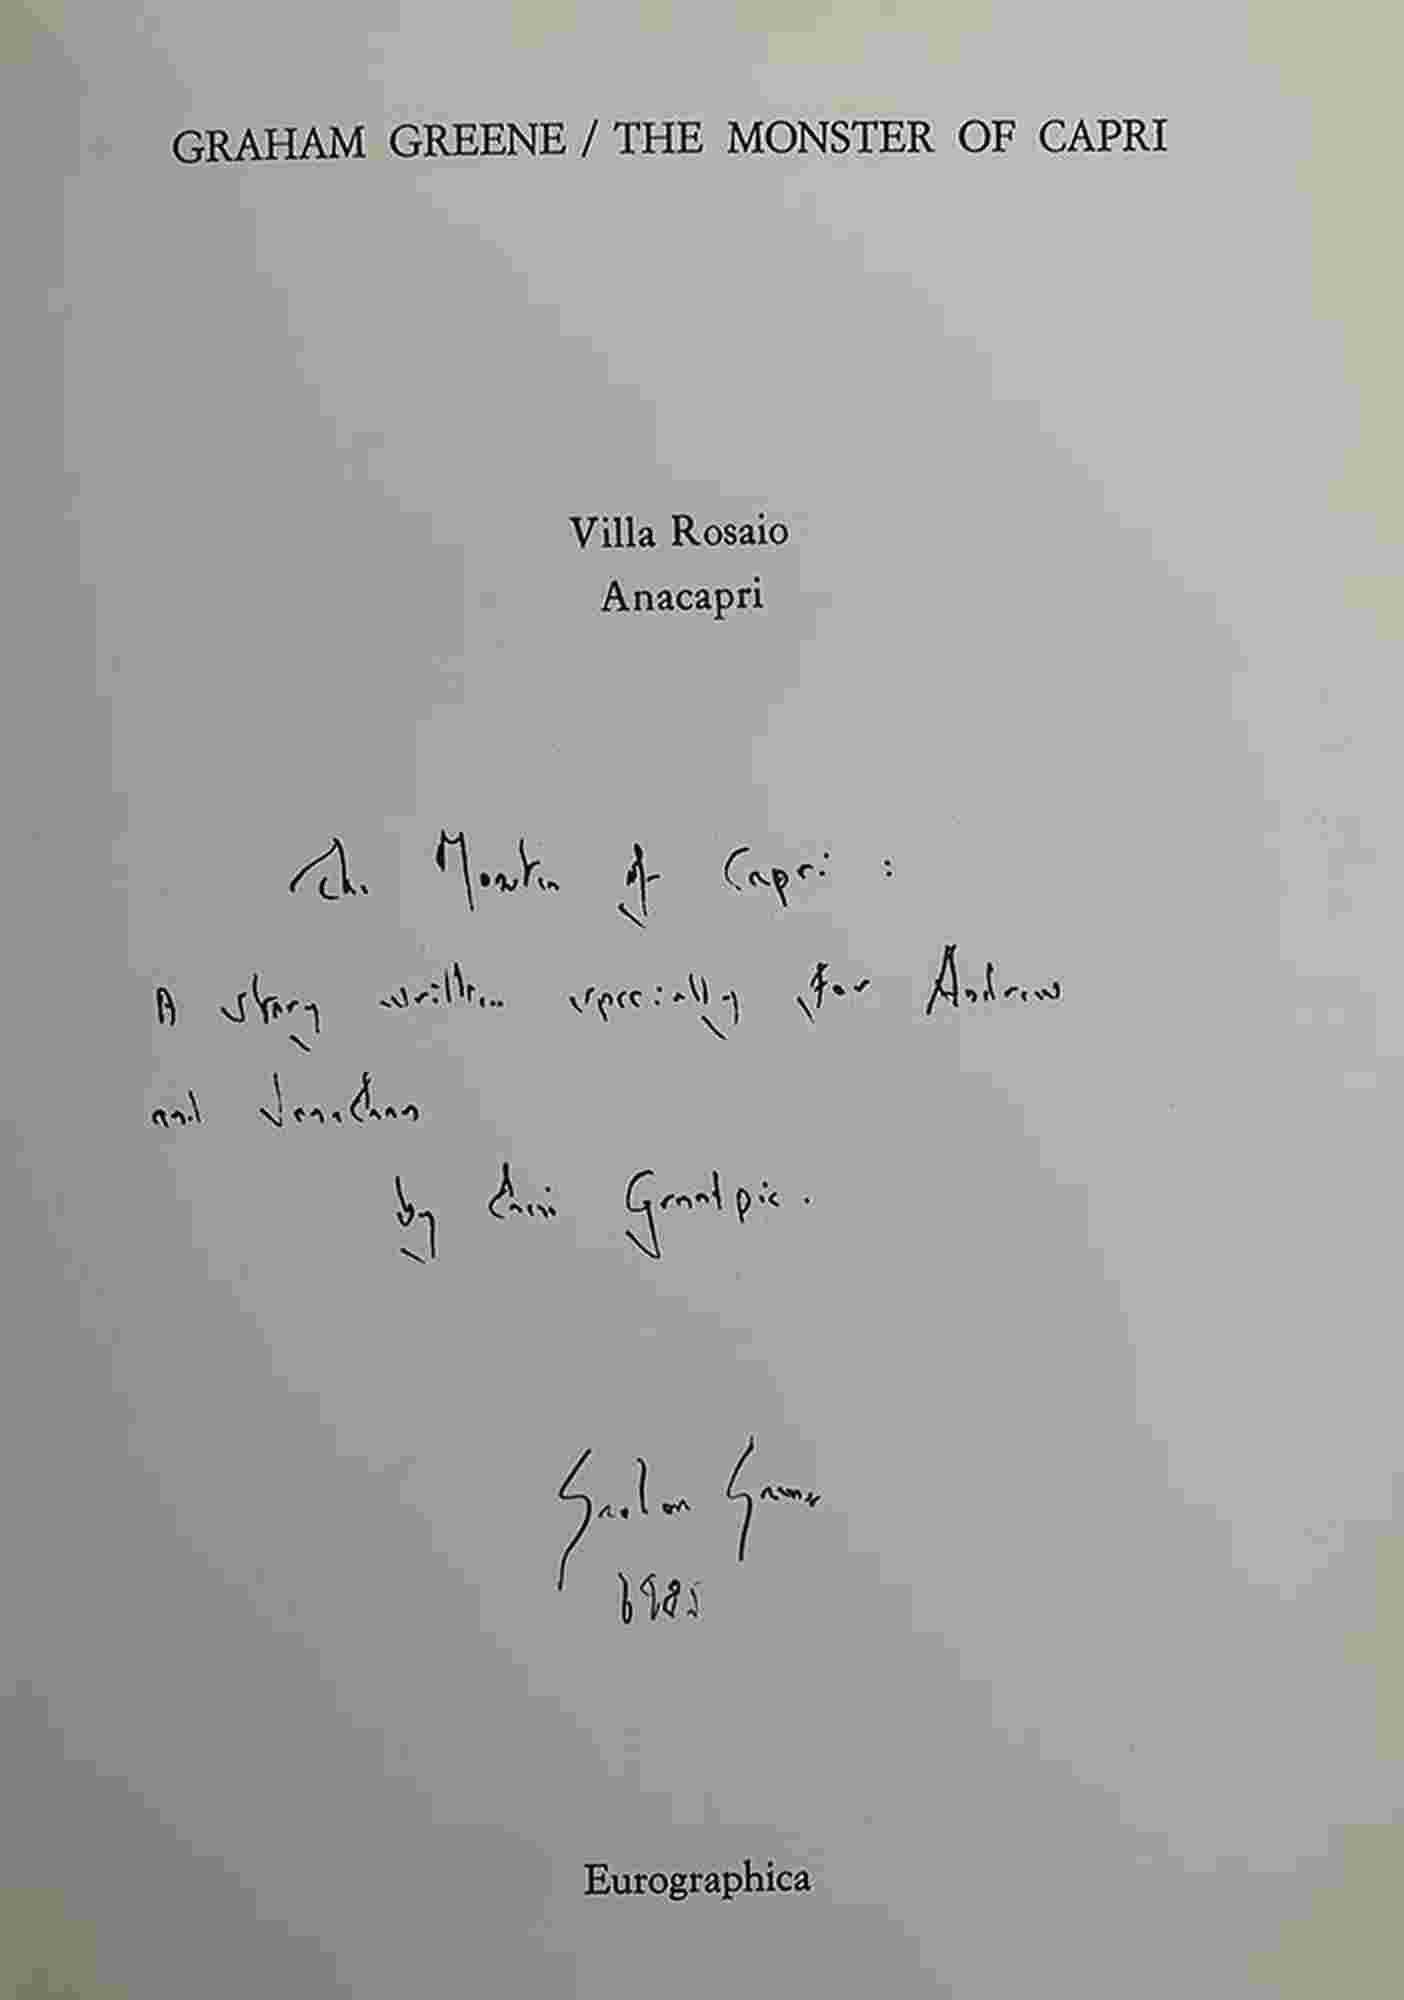 GRAHAM GREENE / THE MONSTER OF CAPRI
Villa Rosaio
Anacapri
The Monster of Capri :
A story written specially for Andrew
and Jonathan
by their Grandpa.
Graham Greene
1985
Eurographica